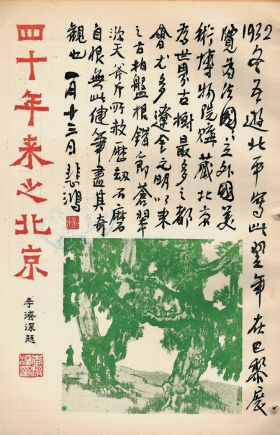 1932冬吾遊北平写此翌年在巴黎展
覽为法國國立外國美
術博物院購藏北京
为世界古樹最多之都
會尤多遼金元明以来
之古柏盤根錯節蒼翠
參天斧斤所赦歷劫不磨
自恨無此健筆盡其奇
觀也 一月十三日 悲鴻
四十年来之北京
李濟深題